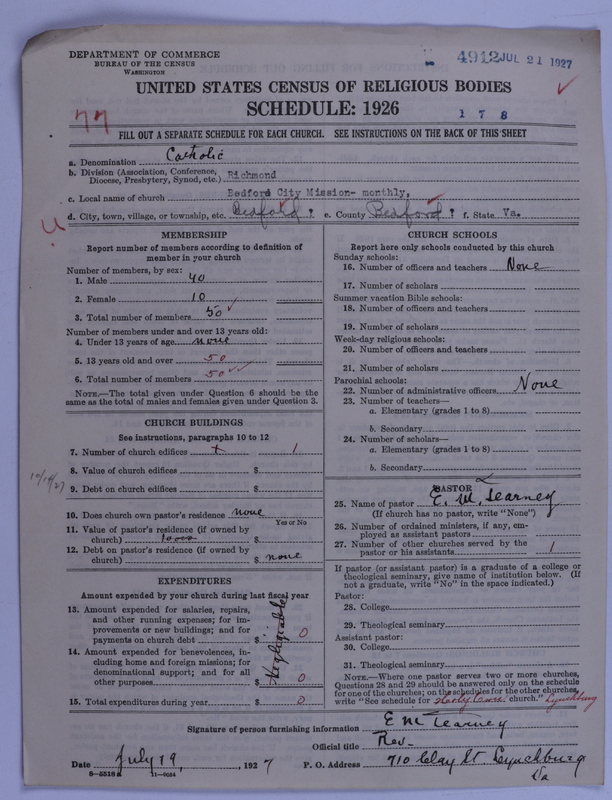 DEPARTMENT OF COMMERCE
BUREAU OF THE CENSUS
WASHINGTON
4912 JUL 21 1927
UNITED STATES CENSUS OF RELIGIOUS BODIES
SCHEDULE: 1926
77
1 7 8
FILL OUT A SEPARATE SCHEDULE FOR EACH CHURCH. SEE INSTRUCTIONS ON THE BACK OF THIS SHEET
a. Denomination Catholic
b. Division (Association, Conference, Diocese, Presbytery, Synod, etc.) Richmond
c. Local name of church Bedford City Mission- monthly,
d. City, town, village, or township, etc. Bedford ? e. County Bedford ? f. State Va.
MEMBERSHIP
Report number of members according to definition of
member in your church
Number of members, by sex:
1. Male 40
2. Female 10
3. Total number of members 50
Number of members under and over 13 years old:
4. Under 13 years of age none
5. 13 years old and over 50
6. Total number of members 50
NOTE.—The total given under Question 6 should be the
same as the total of males and females given under Question 3.
CHURCH BUILDINGS
See instructions, paragraphs 10 to 12
7. Number of church edifices 1
8. Value of church edifices $
9. Debt on church edifices $
10/19/27
10. Does church own pastor's residence? none
Yes or No
11. Value of pastor's residence (if owned by
church) $
12. Debt on pastor's residence (if owned by
church) $ none
EXPENDITURES
Amount expended by your church during last fiscal year
13. Amount expended for salaries, repairs,
and other running expenses; for im-
provements or new buildings; and for
payments on church debt $ 0
14. Amount expended for benevolences, in-
cluding home and foreign missions; for
denominational support; and for all
other purposes $ 0
Negligible
15. Total expenditures during year $ 0
CHURCH SCHOOLS
Report here only schools conducted by this church
Sunday schools:
16. Number of officers and teachers None
17. Number of scholars
Summer vacation Bible schools:
18. Number of officers and teachers
19. Number of scholars
Week-day religious schools:
20. Number of officers and teachers
21. Number of scholars
Parochial schools:
22. Number of administrative officers None
23. Number of teachers—
a. Elementary (grades 1 to 8)
b. Secondary
24. Number of scholars—
a. Elementary (grades 1 to 8)
b. Secondary
PASTOR
25. Name of pastor E. M. Tearney
(If church has no pastor, write "None")
26. Number of ordained ministers, if any, em-
ployed as assistant pastors
27. Number of other churches served by the
pastor or his assistants 1
If pastor (or assistant pastor) is a graduate of a college or
theological seminary, give name of institution below. (If
not a graduate, write "No" in the space indicated.)
Pastor:
28. College
29. Theological seminary
Assistant pastor:
30. College
31. Theological seminary
NOTE.—Where one pastor serves two or more churches,
Questions 28 and 29 should be answered only on the schedule
for one of the churches; on the schedules for the other churches,
write "See schedule for Holy Cross church." Lynchburg
Signature of person furnishing information E M Tearney
Official title Rev-
Date July 19, 1927 P. O. Address 710 Clay St. Lynchburg
Va
8—5518a 11—9034